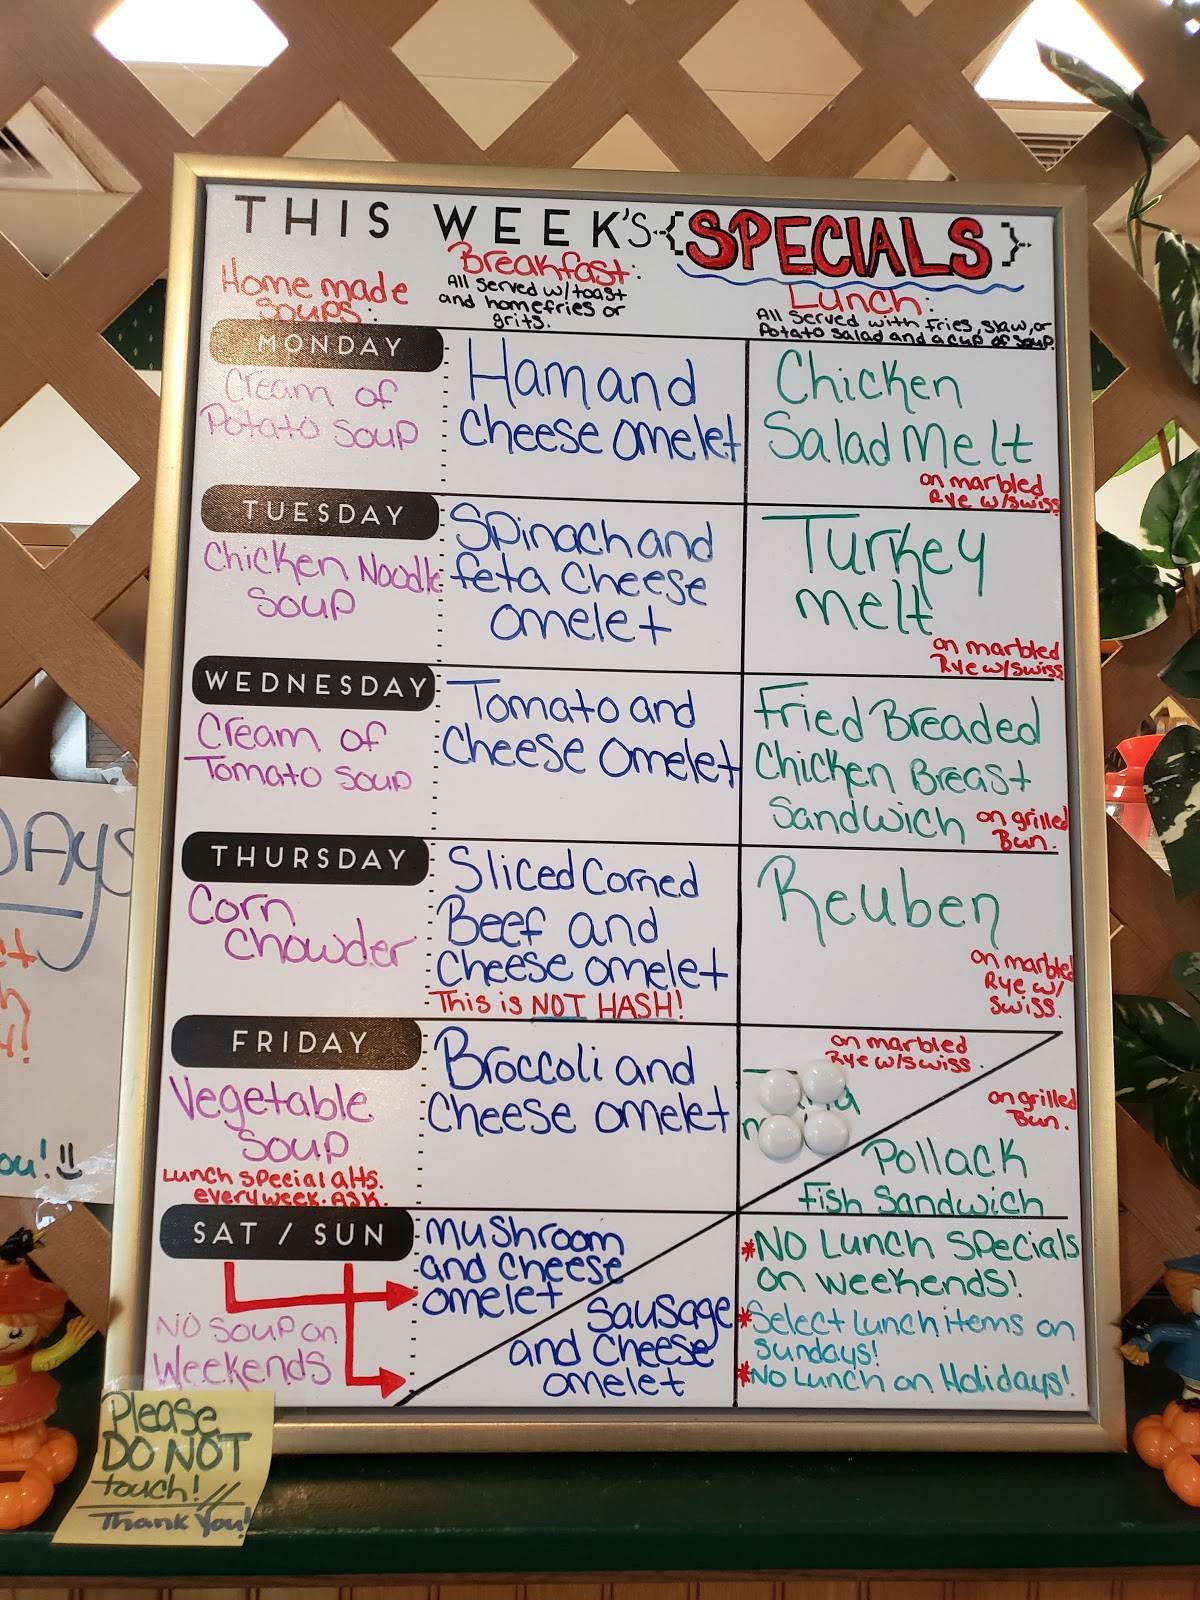 THIS WEEK'S {SPECIALS}
Home made
Soups:
Breakfast:
All served w/toast
and homefries or
grits.
Lunch:
All served with fries, slaw, or
Potato salad and a cup of soup.
MONDAY
Cream of
Potato Soup
Ham and
Cheese omelet
Chicken
Salad Melt
on marbled
Rye w/swiss
TUESDAY
Chicken Noodle
Soup
Spinach and
feta Cheese
omelet
Turkey
melt
on marbled
Rye w/swiss
WEDNESDAY
Cream of
Tomato Soup
Tomato and
Cheese Omelet
Fried Breaded
Chicken Breast
Sandwich
on grilled
Bun.
THURSDAY
Corn
Chowder
Sliced Corned
Beef and
Cheese omelet
This is NOT HASH!
Reuben
on marbled
Rye w/
Swiss.
FRIDAY
Vegetable
Soup
Lunch special alts.
every week. ASK.
Broccoli and
Cheese omelet
on marbled
Rye w/swiss.
on grilled
Bun.
Pollack
Fish Sandwich
SAT / SUN
NO Soup on
Weekends
Mushroom
and cheese
omelet
Sausage
and Cheese
omelet
*NO Lunch Specials
on weekends!
*Select lunch items on
sundays!
*No Lunch on Holidays!
Please
DO NOT
touch!
Thank You!